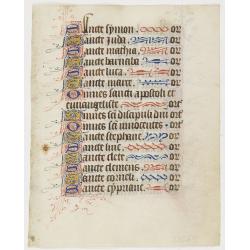 Sancte symon or
Sancte juda or
Sancte mathia or
Sancte barnaba or
Sancte luca or
Sancte marce or
Omnes sancti apostoli et
euangeliste or
Omnes sci discipuli dni or
Omnes sci innocentes or
Sancte stephane or
Sancte line or
Sancte clete or
Sancte clemens or
Sancte corneli or
Sancte cypriane or